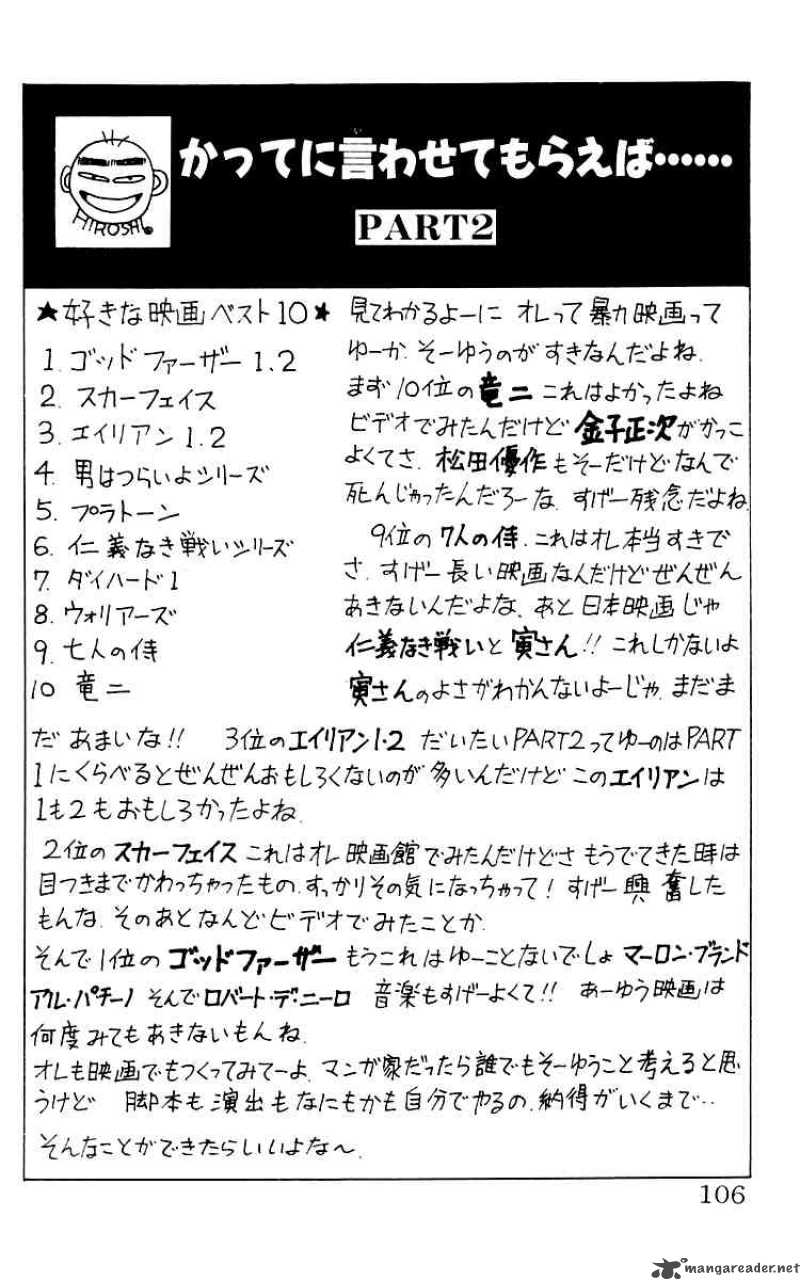 かってに言わせてもらえば……
PART2
HIROSHI.
★好きな映画ベスト10★
1. ゴッドファーザー1.2
2. スカーフェイス
3. エイリアン1.2
4. 男はつらいよシリーズ
5. プラトーン
6. 仁義なき戦いシリーズ
7. ダイハード1
8. ウォリアーズ
9. 七人の侍
10 竜二
見てわかるよーに オレって暴力映画って
ゆーか、そーゆうのがすきなんだよね、
まず10位の竜二 これはよかったよね
ビデオでみたんだけど 金子正次がかっこ
よくてさ、松田優作もそーだけどなんで
死んじゃったんだろーな、すげー残念だよね、
9位の7人の侍、これはオレ本当すきで
さ、すげー長い映画なんだけどぜんぜん
あきないんだよな、あと日本映画じゃ
仁義なき戦いと寅さん!! これしかないよ
寅さんのよさがわかんないよーじゃ、まだま
だ あまいな!! 3位のエイリアン1・2 だいたいPART2ってゆーのはPART
1にくらべるとぜんぜんおもしろくないのが多いんだけど このエイリアンは
1も2もおもしろかったよね、
2位のスカーフェイス これはオレ映画館でみたんだけどさ もうでてきた時は
目つきまでかわっちゃったもの、すっかりその気になっちゃって! すげー興奮した
もんな、そのあとなんどビデオでみたことか、
そんで1位のゴッドファーザー もうこれはゆーことないでしょ マーロン・ブランド
アル・パチーノ そんでロバート・デ・ニーロ 音楽もすげーよくて!! あーゆう映画は
何度みてもあきないもんね、
オレも映画でもつくってみてーよ、マンガ家だったら誰でもそーゆうこと考えると思
うけど 脚本も演出もなにもかも自分でやるの、納得がいくまで‥
そんなことができたらいいよな〜、
106
mangareader.net